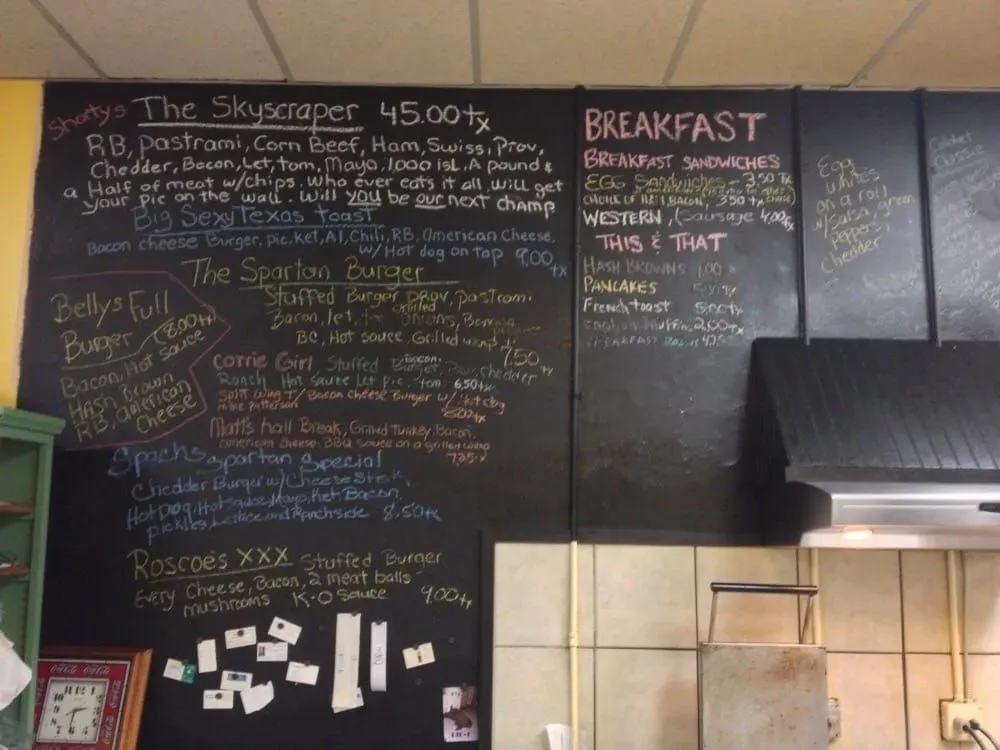 Shortys The Skyscraper 45.00+x
RB, Pastrami, Corn Beef, Ham, Swiss, Prov,
Chedder, Bacon, Let, tom, Mayo, 1000 isl. A pound &
a Half of meat w/chips. Who ever eats it all will get
your pic on the wall. Will you be our next champ
Big Sexy Texas toast
Bacon cheese Burger, pic, ket, A1, Chili, RB, American Cheese.
w/ Hot dog on top 9.00
tx
The Spartan Burger
Stuffed Burger prov, Pastrami
Bacon, let, Grilled onions,
BC, Hot sauce, Grilled
7.50
Bellys Full
Burger 8.00tx
Bacon, Hot sauce
Hash Brown
RB, american
cheese
Corrie Girl, Stuffed Bacon Burger, chedder
Ranch Hot sauce Let pic, tom 6.50tx
Split Wing T/ Bacon Cheese Burger w/ hot dog
mike patterson
Matt's hall Break, Grilled Turkey, Bacon,
american cheese, BBQ sauce on a grilled wrap
7.25
Spachs Spartan Special
Chedder Burger w/ Cheese Steak
Hot Dog, Hot sauce, Mayo, Ket, Bacon,
pickles, Lettuce and Ranch side 8.50tx
Roscoes XXX Stuffed Burger
Every Cheese, Bacon, 2 meat balls
mushrooms K-O Sauce 9.00tx
BREAKFAST
BREAKFAST SANDWICHES
EGG Sandwiches 3.50 Tx
CHOICE OF HAM, BACON, 3.50 tx
WESTERN, (Sausage 4.00tx
THIS & THAT
HASH BROWNS 1.00
PANCAKES
French toast 5.00tx
English Muffin 2.00tx
Egg
whites
on a roll
w/ salsa, green
peppers,
chedder
Coca-Cola